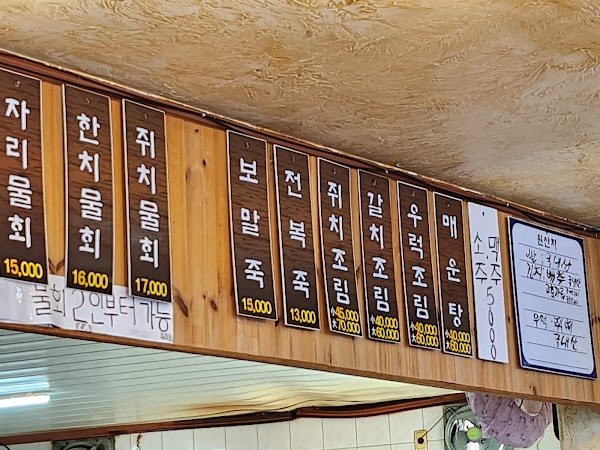 자리물회
15,000
한치물회
16,000
쥐치물회
17,000
물회 2인부터 가능
보말죽
15,000
전복죽
13,000
쥐치조림
小 45,000
大 70,000
갈치조림
小 40,000
大 60,000
우럭조림
小 40,000
大 60,000
매운탕
小 40,000
大 60,000
소,맥주 5000
원산지
쌀: 국내산
김치 배추
우럭
국내산